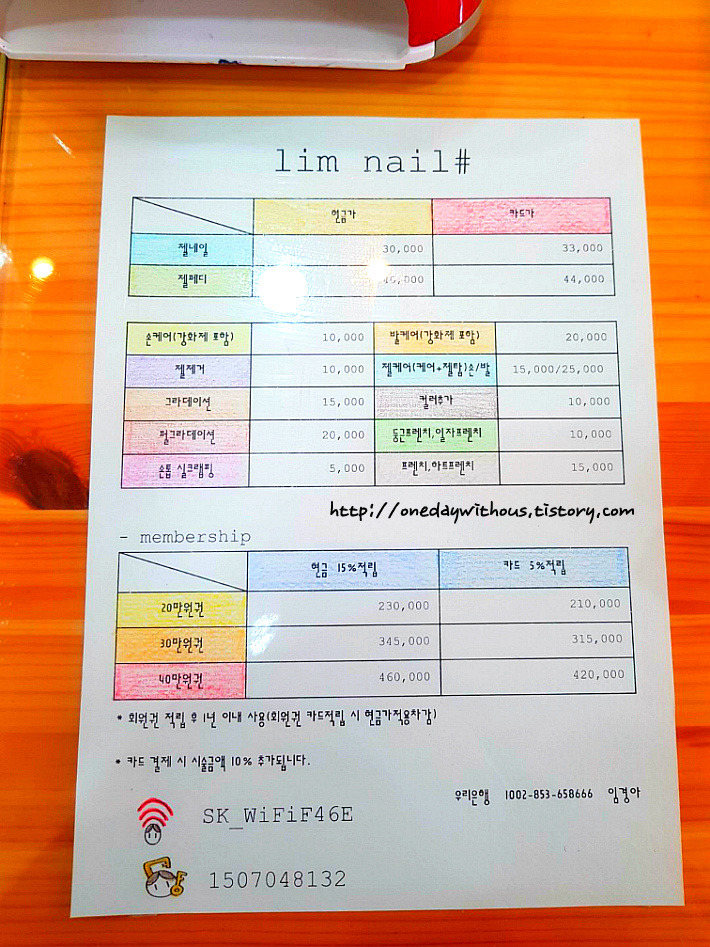 lim nail#
현금가 카드가
젤네일 30,000 33,000
젤페디 44,000
손케어(강화제 포함) 10,000 발케어(강화제 포함) 20,000
젤제거 10,000 젤케어(케어+젤탑)손/발 15,000/25,000
그라데이션 15,000 컬러추가 10,000
펄그라데이션 20,000 둥근프렌치,일자프렌치 10,000
손톱 실크랩핑 5,000 프렌치,하트프렌치 15,000
http://onedaywithous.tistory.com
- membership
현금 15%적립 카드 5%적립
20만원권 230,000 210,000
30만원권 345,000 315,000
40만원권 460,000 420,000
* 회원권 적립 후 1년 이내 사용(회원권 카드적립 시 현금가적용차감)
* 카드 결제 시 시술금액 10% 추가됩니다.
우리은행 1002-853-658666 임경아
SK_WiFiF46E
1507048132